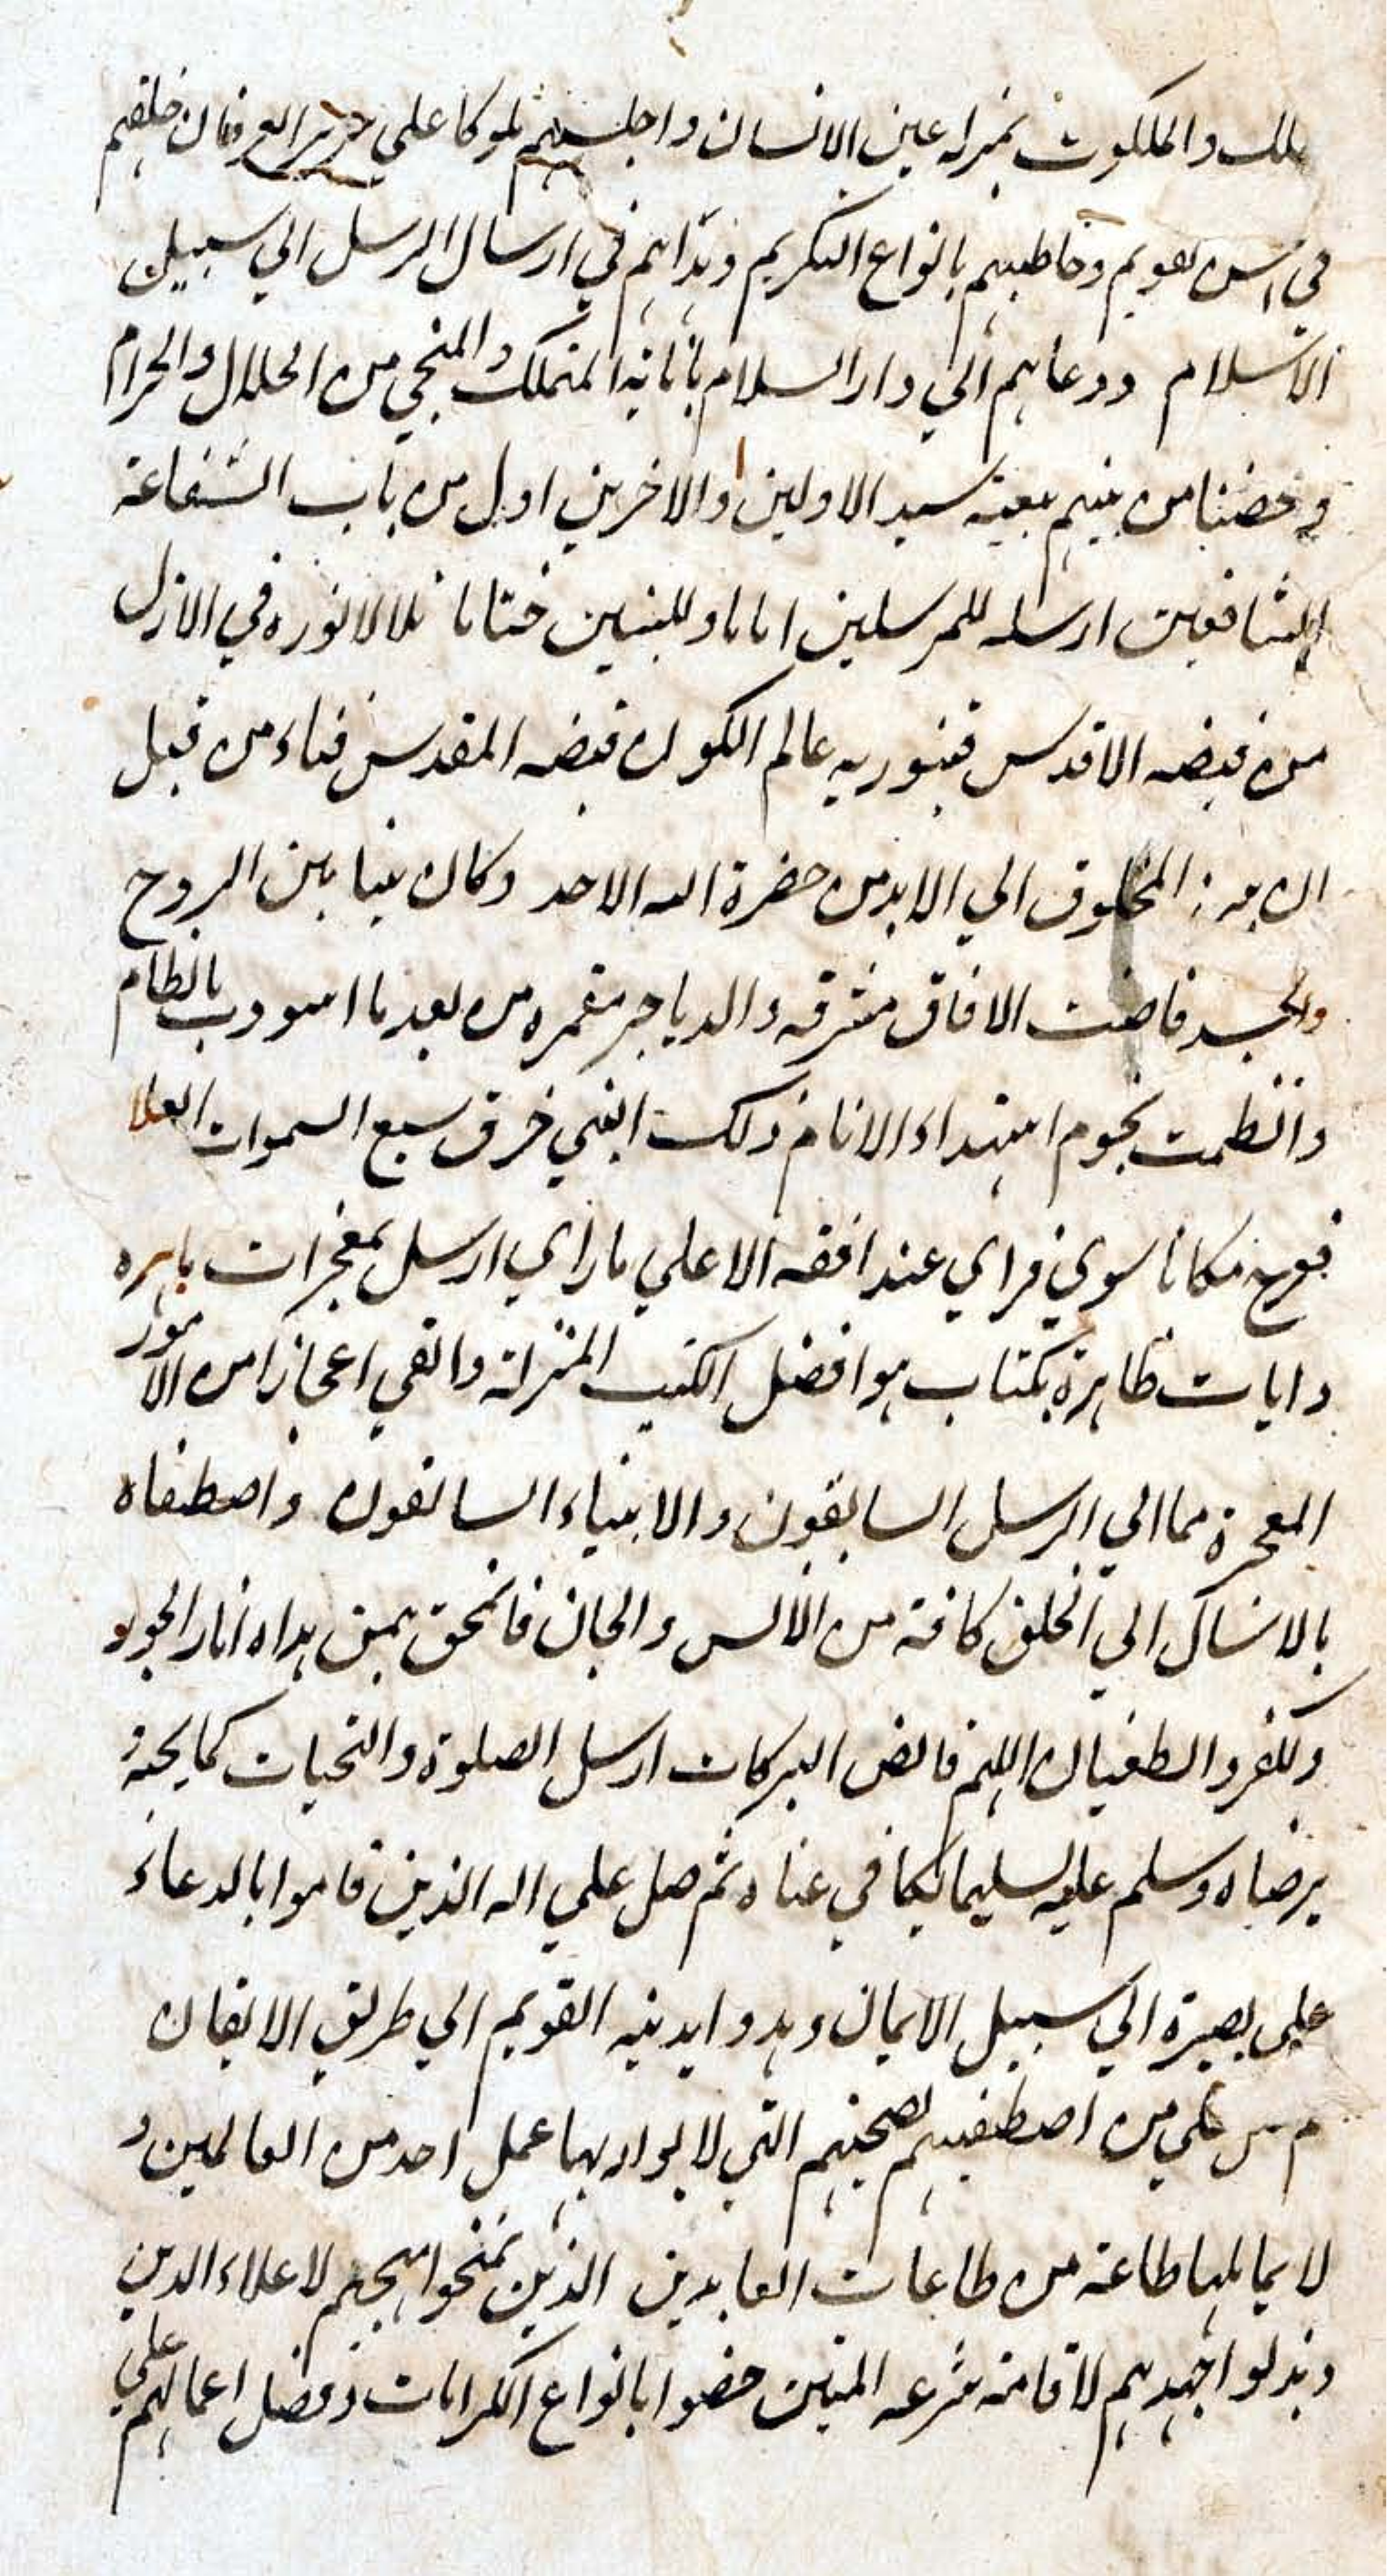 والملكوت بمنزله عين الانسان واجلسهم ملوكا علي سرير خلقهم
في احسن تقويم وخاطبهم بانواع التكريم وبداهم في ارسال الرسل الي سبيل
الاسلام ودعاهم الي دار السلام المنجي من الحلال والحرام
وخصنا من بينهم ببعثة سيد الاولين والاخرين اول من باب الشفاعة
للشافعين ارسله للمرسلين اماما وللنبيين ختاما تلالا نوره في الازل
من فيضه الاقدس فتنور به عالم الكون فيضه المقدس فناء من قبل
المخلوق الي الابد من حضرة الله الاحد وكان نبيا بين الروح
والجسد فاضت الافاق مشرقه والدياجر مقمره من بعد ما اسودت بالظلام
وانتظمت نجوم اهتداء الانام ذلك النبي خرق سبع السموات العلا
فعرج مكانا سوي فراي عند افقه الاعلي ما راي ارسل بمعجزات باهره
وايات ظاهرة بكتاب هو افضل الكتب المنزلة والقي اعجازا من الامور
المعجزة مما الي الرسل السابقون والانبياء السالفون واصطفاه
بالارسال الي الخلق كافة من الانس والجان فانمحق بمن هداه اثار الجود
والكفر والطغيان اللهم فائض البركات ارسل الصلوة والتحيات كما يحبه
يرضاه وسلم عليه تسليما يكافي عناه ثم صل علي اله الذين قاموا بالدعاء
علي بصيرة الي سبيل الايمان وهدوا بدينه القويم الي طريق الايقان
علي من اصطفيتهم لصحبتهم التي لا يوازيها عمل احد من العالمين و
لا يماثلها طاعة من طاعات العابدين الذين منحوا مهجهم لاعلاء الدين
وبذلوا جهدهم لاقامة شرعه المتين خصوا بانواع الكرامات وفضل اعمالهم علي